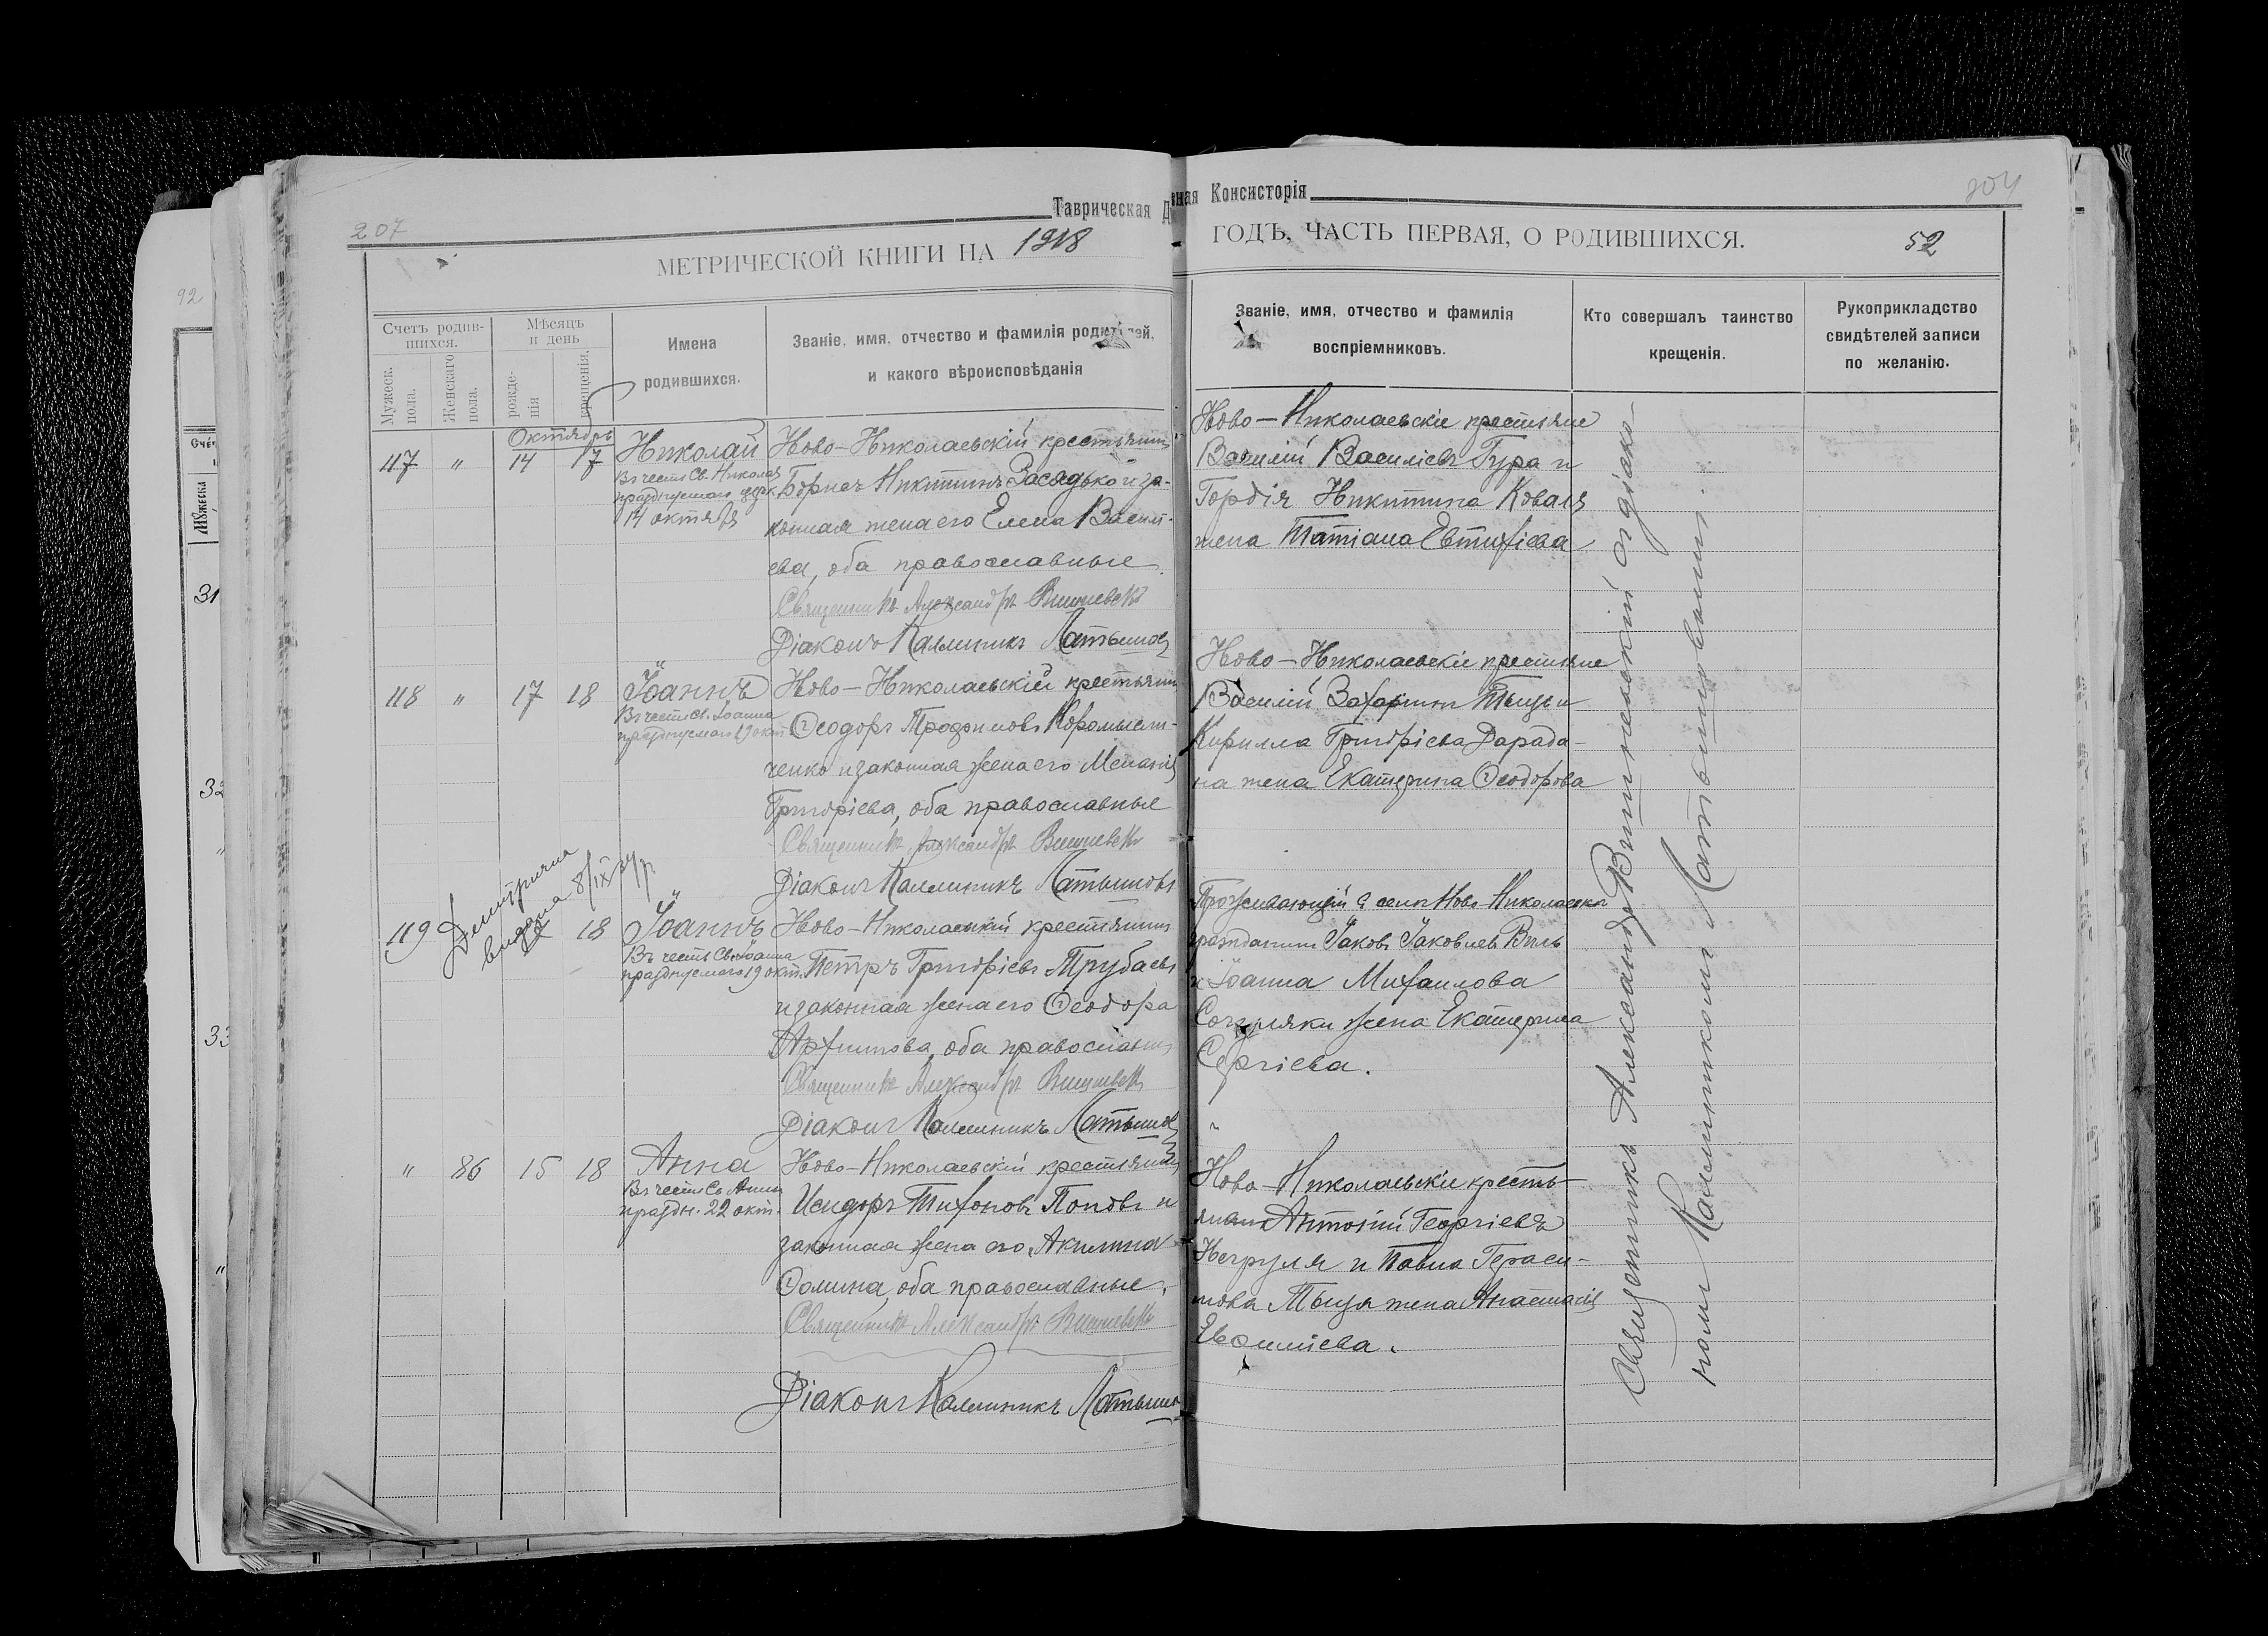 Таврическая Д
вная Консисторія
207
204
МЕТРИЧЕСКОЙ КНИГИ НА 1918
ГОДЪ, ЧАСТЬ ПЕРВАЯ, О РОДИВШИХСЯ.
52
92
Счетъ родив-
шихся.
Мужеск.
пола.
Женскаго
пола.
Мѣсяцъ
и день
рожде-
нія
крещенія.
Имена
родившихся.
Званіе, имя, отчество и фамилія родителей,
и какого вѣроисповѣданія
Званіе, имя, отчество и фамилія
воспріемниковъ.
Кто совершалъ таинство
крещенія.
Рукоприкладство
свидѣтелей записи
по желанію.
31
32
33
Октябрь
117 " 14 17 Николай
Въ честь Св. Николая
празднуемаго церк.
14 октября
Ново-Николаевскій крестьянинъ
Борисъ Никитинъ Засядько и за-
конная жена его Елена Василі-
ева, оба православные
Священникъ Александръ Вишневскій
Діаконъ Каллиникъ Латышовъ
Ново-Николаевскіе крестьяне
Василій Василіевъ Гура и
Гордія Никитина Коваля
жена Татіана Евтихіева
118 " 17 18 Іоаннъ
Въ честь Св. Іоанна
празднуемаго 19 окт.
Ново-Николаевскій крестьянинъ
Ѳеодоръ Трофимовъ Коромысли-
ченко и законная жена его Меланія
Григоріева, оба православные
Священникъ Александръ Вишневскій
Діаконъ Каллиникъ Латышовъ
Ново-Николаевскіе крестьяне
Василій Захаринъ Тыцъ и
Кирилла Григоріева Дарада-
на жена Екатерина Ѳеодорова
выдана 8/IX 24 р
119 18 Іоаннъ
Въ честь Св. Іоанна
празднуемаго 19 окт.
Ново-Николаевскій крестьянинъ
Петръ Григоріевъ Трубаевъ
и законная жена его Ѳеодора
Архипова, оба православные
Священникъ Александръ Вишневскій
Діаконъ Каллиникъ Латышовъ
Проживающій въ селѣ Ново-Николаевкѣ
гражданинъ Іаковъ Іаковлевъ Виль
и Іоанна Михаилова
жена Екатерина
Сергіева.
" 86 15 18 Анна
Въ честь Св. Анны
праздн. 22 окт.
Ново-Николаевскій крестьянинъ
Исидоръ Тихоновъ Поповъ и
законная жена его Акилина
Ѳомина, оба православные.
Священникъ Александръ Вишневскій
Діаконъ Каллиникъ Латышовъ
Ново-Николаевскіе кресть-
яне Антоній Георгіевъ
Негруля и Павла Гераси-
мова Тыця жена Анастасія
Евѳиміева.
Священникъ Александръ Вишневскій съ діако-
номъ Каллиникомъ Латышовымъ.